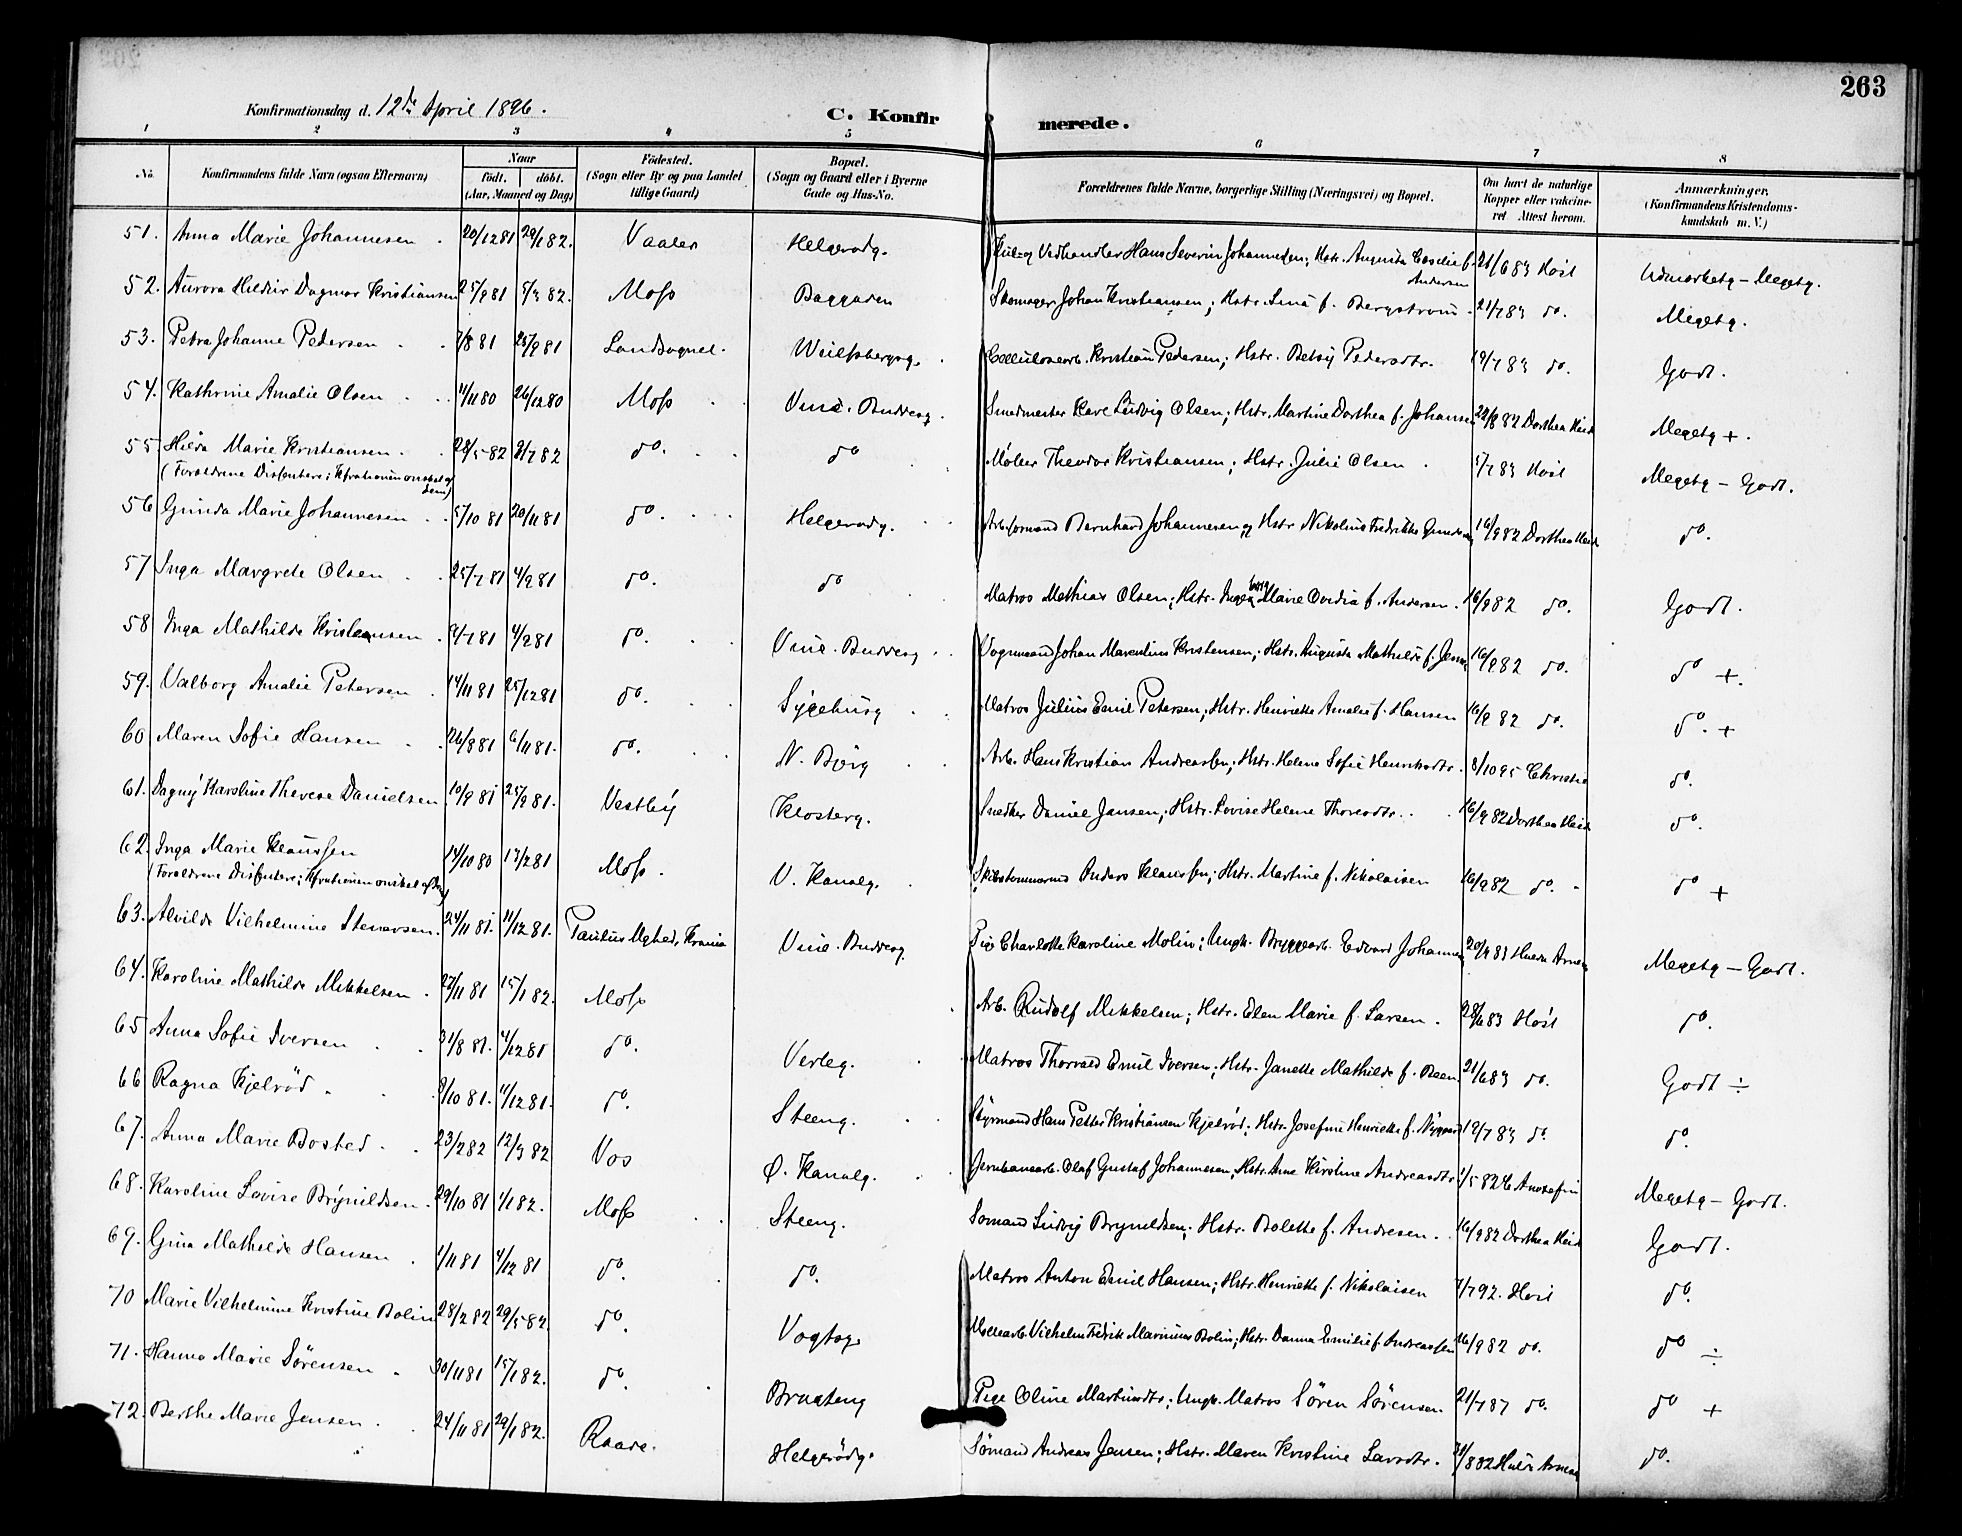 263
Konfirmationsdag d. 12te April 1896.
C. Konfirmerede.
1 2 3 4 5 6 7 8
No. Konfirmandens fulde Navn (ogsaa Efternavn) Naar født. døbt. (Aar, Maaned og Dag) Födested. (Sogn eller By og paa Landet tillige Gaard) Bopæl. (Sogn og Gaard eller i Byerne Gade og Hus-No. Forældrenes fulde Navne, borgerlige Stilling (Næringsvei) og Bopæl. Om havt de naturlige Kopper eller vakcineret Attest herom. Anmærkninger. (Konfirmandens Kristendomskundskab m. V.)
51. Anna Marie Johannesen 20/12 81 29/1 82. Vaaler Helgerødg. Vedhandler Hans Severin Johannesen; Hstr. Augusta Cecilie f. Andersen 21/6 83 Høst Udmærketg - Megetg.
52. Aurora Hildur Dagmar Kristiansen 25/9 81 5/3 82. Moss Baggaden Skomager Johan Kristiansen; Hstr. Lina f. Bergstrøm 21/7 83 do. Megetg.
53. Petra Johanne Pedersen 7/8 81 25/9 81 Landsognet Wulfsbergsg. Cellulosearb. Kristian Pedersen; Hstr. Betsy Pedersdtr. 19/7 83 do. Godt.
54. Kathrine Amalie Olsen 11/11 80 26/12 80 Moss Vinc. Budderg. Smedmester Karl Ludvig Olsen; Hstr. Martine Dorthea f. Johansen 22/8 82 Dorthea Heide Megetg +.
55 Hilda Marie Kristiansen 28/5 82 9/7 82 do. do Møller Theodor Kristiansen; Hstr. Julie Olsen 5/7 83 Høst Megetg - Godt.
(Forældrene Disentere; Kfrationen ønsket af dem)
56 Gunda Marie Johannesen 5/10 81 20/11 81 do. Helgerødg. Arb.formand Bernhard Johannesen og Hstr Nikoline Fredrikke 16/9 82 Dorthea Heide do.
57 Inga Margrete Olsen 25/7 81 4/9 81 do. do Matros Mathias Olsen; Hstr. Ingeborg Marie Ovidia f. Andersen 16/9 82 do. Godt.
58 Inga Mathilde Kristensen 9/7 81 4/9 81 do. Vinc. Budderg Vognmand Johan Marentius Kristensen; Hstr. Augusta Mathilde f. Jensen 16/9 82 do. do +.
59. Valborg Amalie Petersen 14/11 81 25/12 81 do. Sygehusg Matros Julius Emil Petersen; Hstr. Henriette Amalie f. Hansen 16/9 82 do. do. +
60 Maren Sofie Hansen 26/8 81 6/11 81. do. N. Byrg Arb. Hans Kristian Andreassen; Hstr. Helene Sofie Henriksdtr. 8/10 95 Christie do.
61. Dagny Karoline Therese Danielsen 10/9 81 25/9 81. Vestby Klosterg. Snedker Daniel Jansen; Hstr. Lovise Helene Thoresdtr. 16/9 82 Dorthea Heide do.
62. Inga Marie Klaussen 14/10 80 13/2 81 Moss. V. Kanalg. Skibstømmermd Anders Klaussen; Hstr. Martine f. Nikolaisen 16/9 82 do. do +
(Forældrene Disentere; Kfrationen ønsket af dem)
63. Alvilde Vilhelmine Stenersen 24/11 81. 11/12 81. Paulus Mghed. Krania Vinc. Budderg. Pige Charlotte Karoline Molin; Ungk. Bryggearb. Edvard Johannesen 20/4 83 Hulda Arnesen Megetg - Godt.
64. Karoline Mathilde Mikkelsen 27/11 81 15/1 82. Moss Arb. Rudolf Mikkelsen; Hstr. Elen Marie f. Larsen 28/6 83 Høst do.
65 Anna Sofie Iversen 31/8 81. 4/12 81 do. Verleg. Matros Thorvald Emil Iversen; Hstr. Janette Mathilde f. Been 21/6 83 do. Godt ÷
66 Ragna Kjelrød 9/10 81. 4/12 81. do. Steeng. Styrmand Hans Petter Kristiansen Kjelrød; Hstr. Josefine Henriette f. Nygaard 19/7 83 do. do.
67. Anna Marie Bosted 23/2 82 12/3 82 Vos Ø. Kanalg. Jernbanearb. Olaf Gustaf Johannesen; Hstr. Ane Kirstine Andreasdtr. 1/5 82 Megetg - Godt.
68. Karoline Lovise Brynildsen 29/10 81 1/1 82. Moss Steeng. Sømand Ludvig Brynildsen; Hstr. Bolette f. Andresen 16/9 82 Dorthea Heide Godt.
69. Gina Mathilde Hansen 1/11 81 4/12 81 do. do. Matros Anton Emil Hansen; Hstr. Henriette f. Nikolaisen 7/7 92. Høst do.
70 Marie Vilhelmine Kristine Bolin 28/2 82 29/5 82. do. Vogtsg Møllearb. Vilhelm Fredrik Marinius Bolin; Hstr. Emilie f. Andreassen 16/9 82 do. do ÷
71. Hanna Marie Sørensen 30/11 81 15/1 82. do. Brusteng Pige Oline Martinsdtr; Ungk. Matros Søren Sørensen 21/7 87 do. do +
72. Berthe Marie Jensen 24/11 81 29/1 82. Raade. Helgerødg. Sømand Andreas Jensen; Hstr. Maren Kristine Larsdtr. 31/8 82 Hulda Arnesen do.